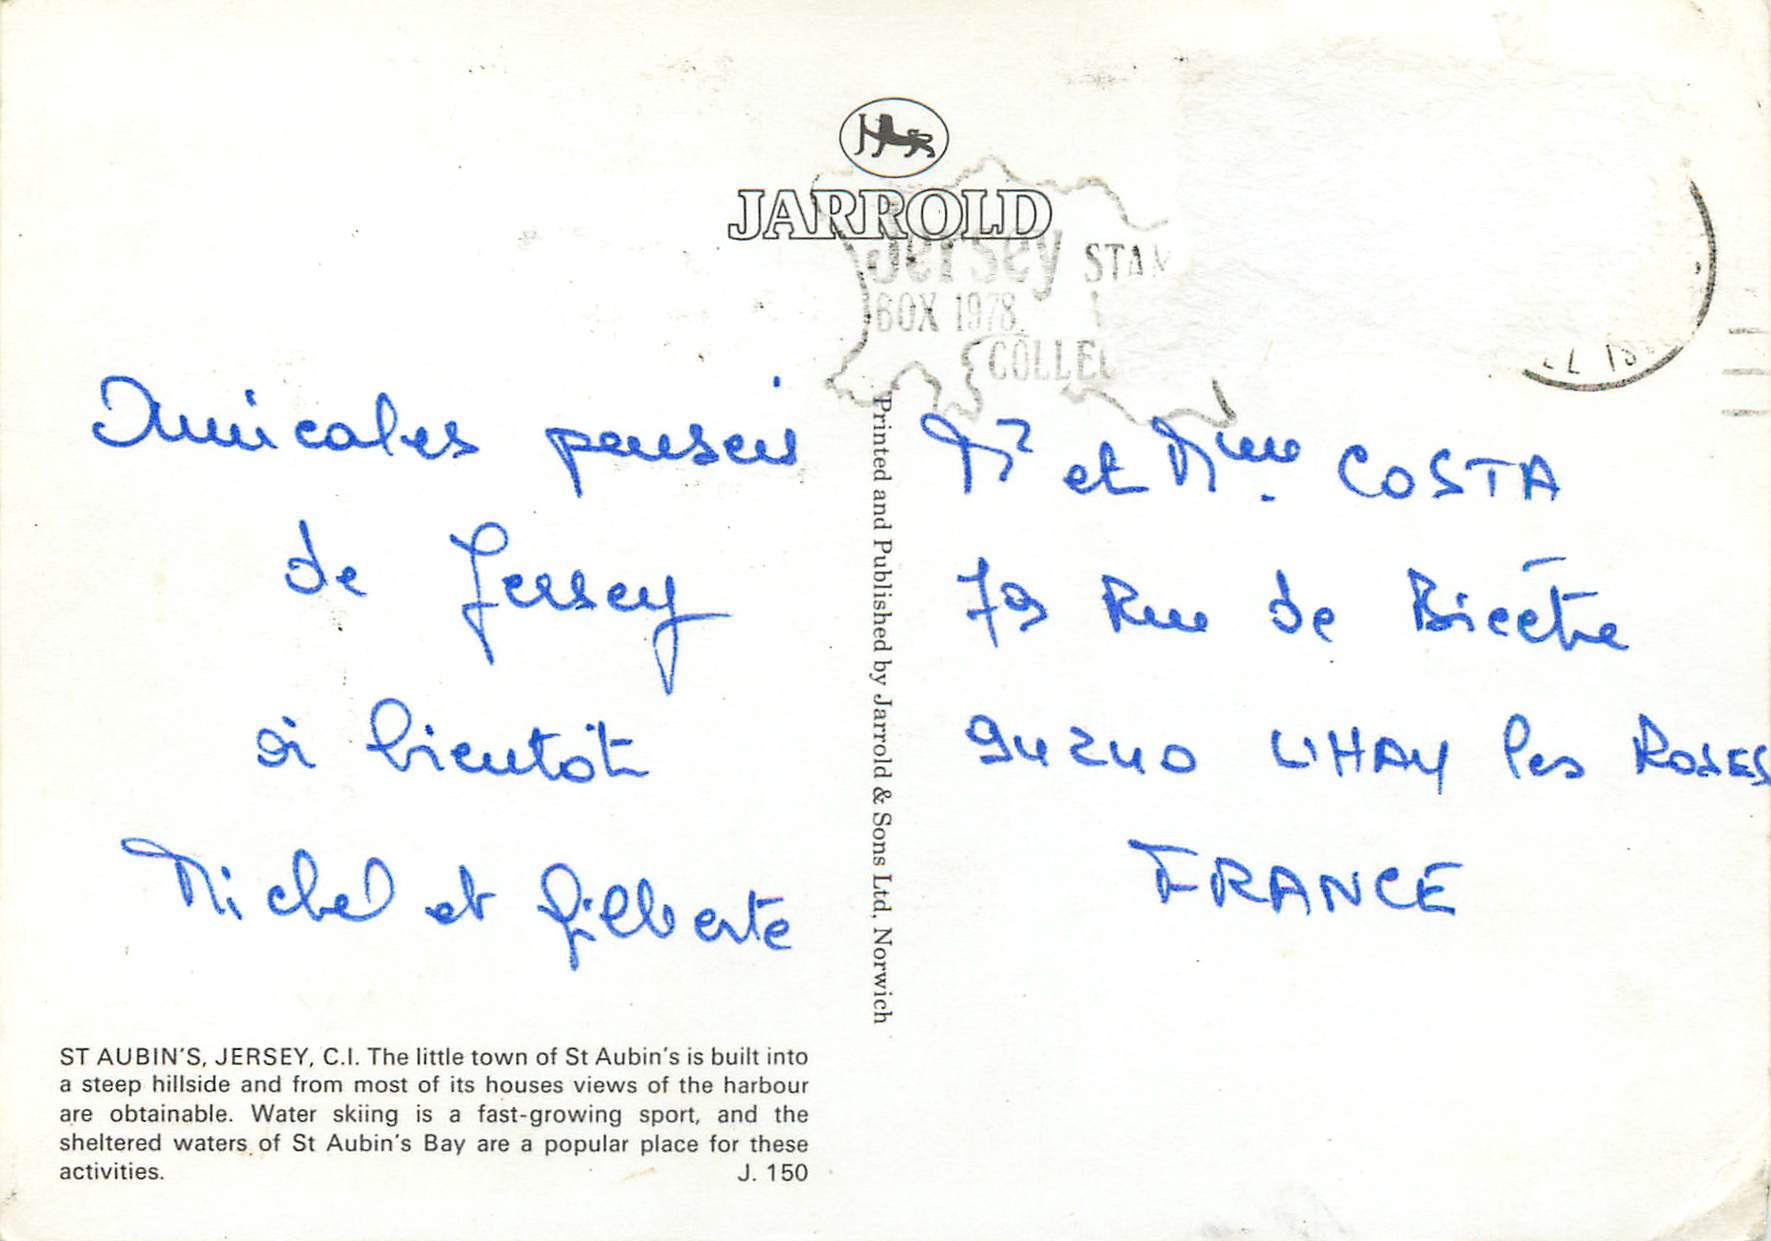 JARROLD
Jersey STAM
BOX 1978
COLLEC
Amicales pensées
de Jersey
à bientôt
Michel et Gilberte
Mr et Mme. COSTA
79 Rue de Bicêtre
94240 L'HAY les ROSES
FRANCE
Printed and Published by Jarrold & Sons Ltd, Norwich
ST AUBIN'S, JERSEY, C.I. The little town of St Aubin's is built into
a steep hillside and from most of its houses views of the harbour
are obtainable. Water skiing is a fast-growing sport, and the
sheltered waters of St Aubin's Bay are a popular place for these
activities. J. 150